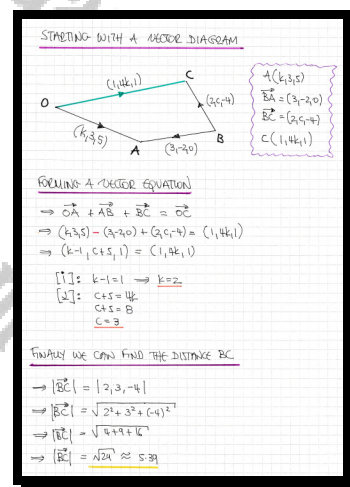 STARTING WITH A VECTOR DIAGRAM
(1,4k,1)
C
O
(2,c,-4)
(k,3,5)
A
(3,-2,0)
B
A(k,3,5)
BA⃗ = (3,-2,0)
BC⃗ = (2,c,-4)
C(1,4k,1)
FORMING A VECTOR EQUATION
⇒ OA⃗ + AB⃗ + BC⃗ = OC⃗
⇒ (k,3,5) − (3,-2,0) + (2,c,-4) = (1,4k,1)
⇒ (k-1, c+5, 1) = (1,4k,1)
[i]: k-1=1 ⇒ k=2
[j]: c+5=4k
c+5=8
c=3
FINALLY WE CAN FIND THE DISTANCE BC
⇒ |BC⃗| = |2,3,-4|
⇒ |BC⃗| = √(2²+3²+(-4)²)
⇒ |BC⃗| = √(4+9+16)
⇒ |BC⃗| = √29 ≈ 5.39